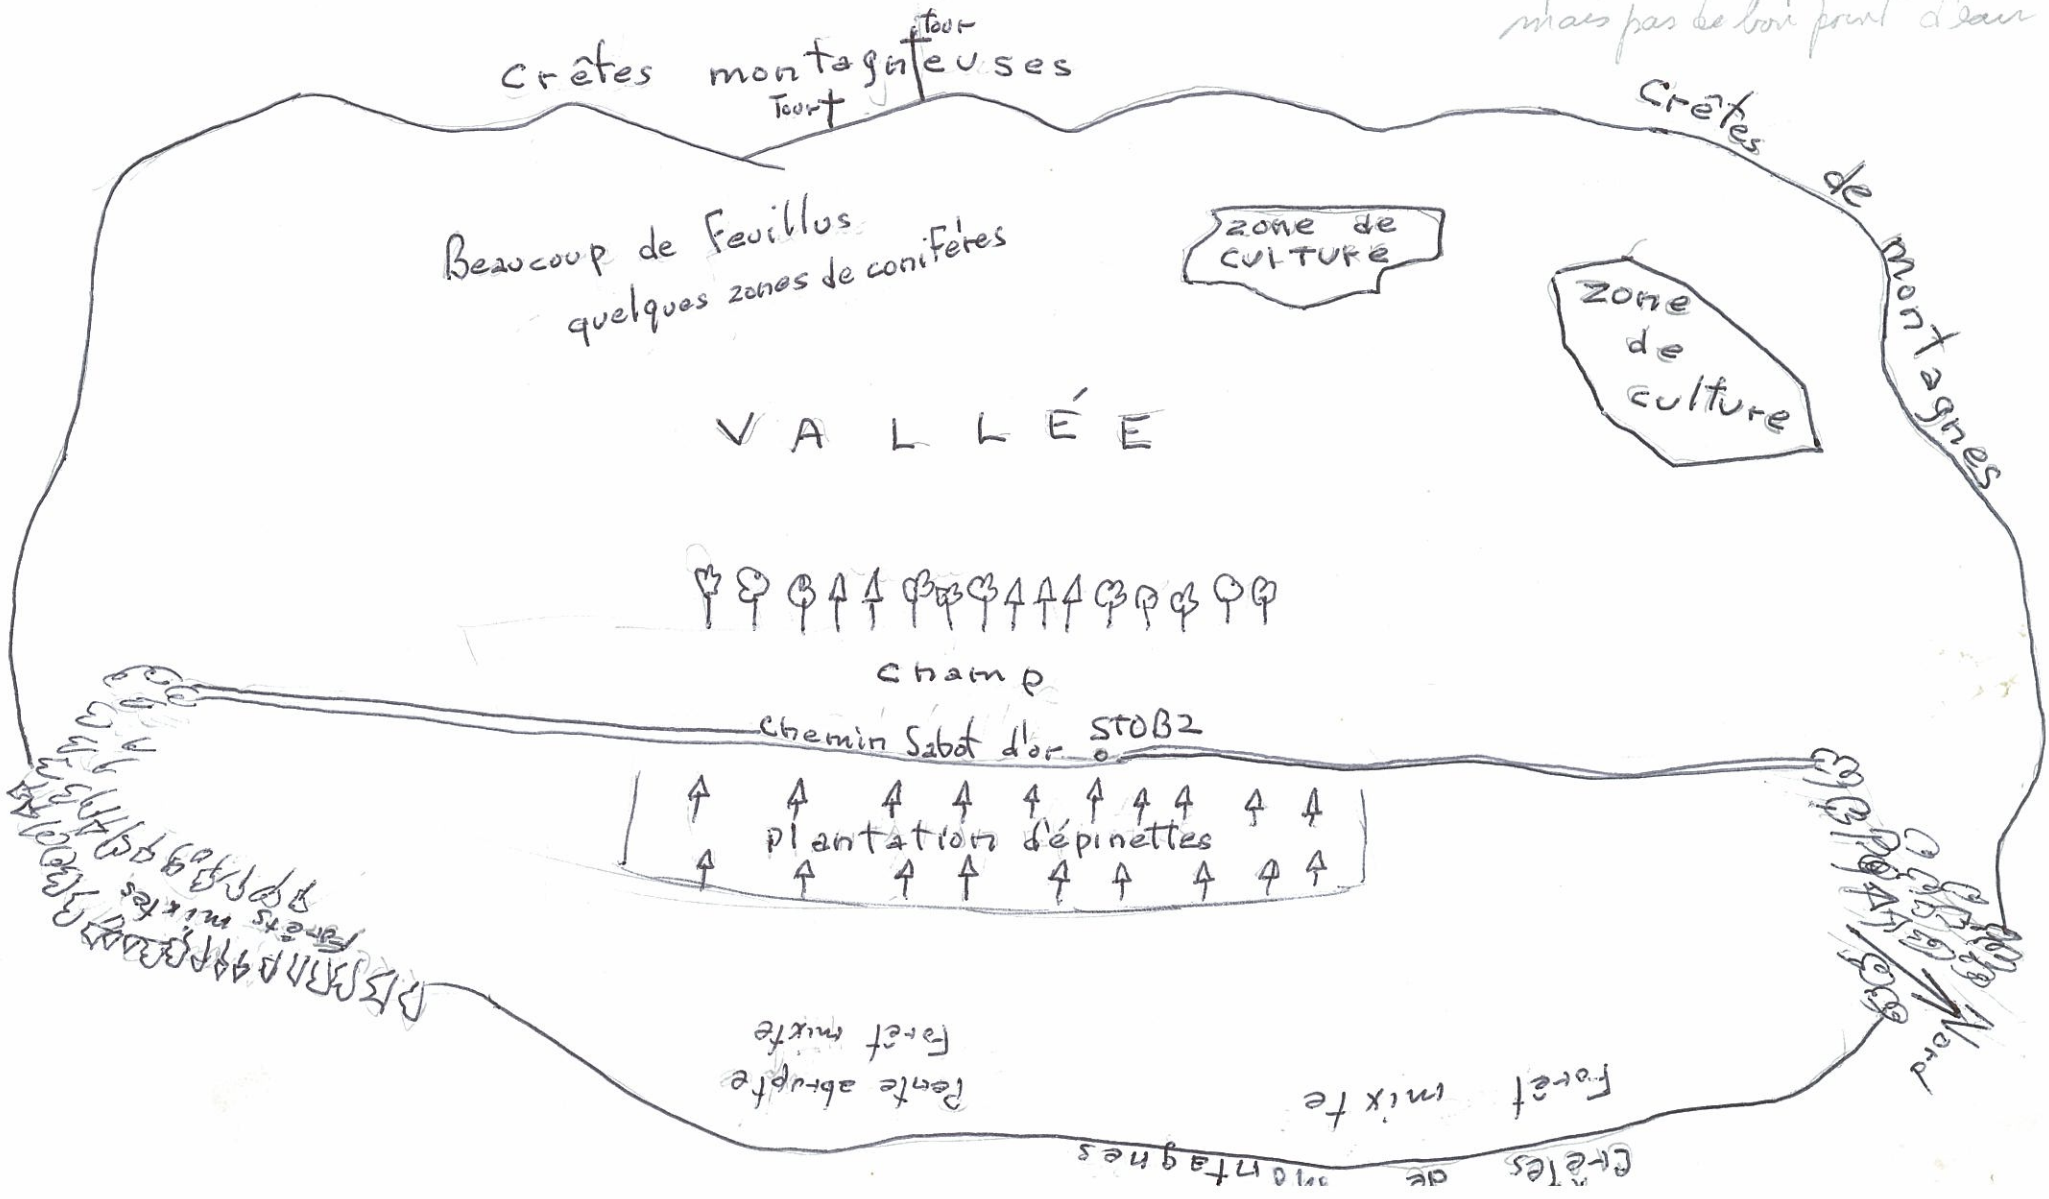 mais pas de bon point d'eau
Tour
Crêtes montagneuses
Tour
Crêtes de montagnes
Beaucoup de Feuillus
quelques zones de conifères
zone de
culture
zone
de
culture
VALLÉE
champ
Chemin Sabot d'or STOB2
plantation d'épinettes
Forêts mixtes
Nord
Pente abrupte
Forêt mixte
Forêt mixte
Crêtes de montagnes